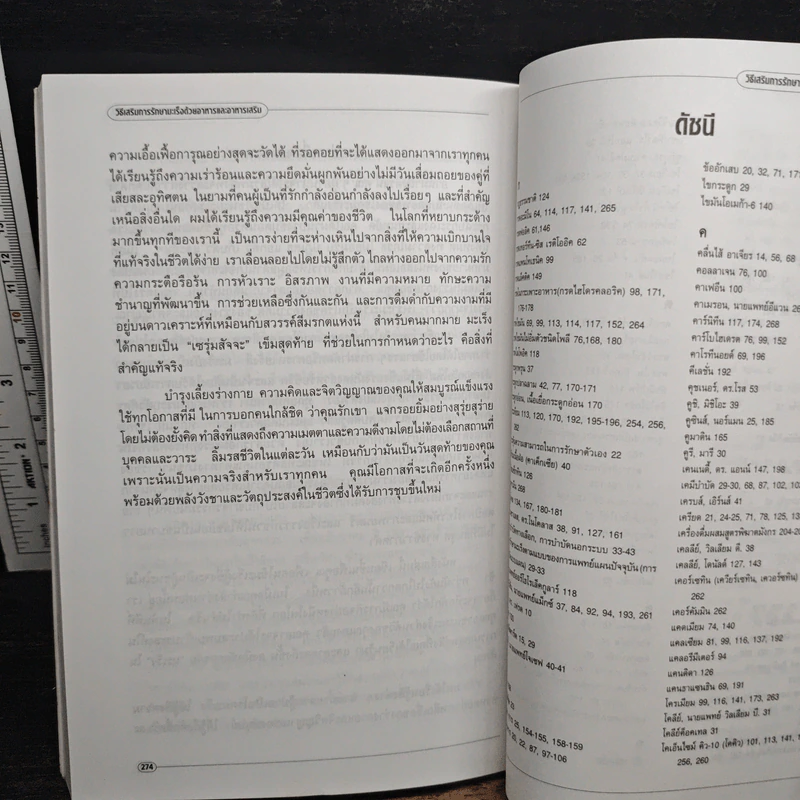 วิธีเสริมการรักษามะเร็งด้วยอาหารและอาหารเสริม
ความเอื้อเฟื้อการุณอย่างสุดจะวัดได้ ที่รอคอยที่จะได้แสดงออกมาจากเราทุกคน
ได้เรียนรู้ถึงความเร่าร้อนและความยึดมั่นผูกพันอย่างไม่มีวันเสื่อมถอยของคู่ที่
เสียสละอุทิศตน ในยามที่คนผู้เป็นที่รักกำลังอ่อนกำลังลงไปเรื่อยๆ และที่สำคัญ
เหนือสิ่งอื่นใด ผมได้เรียนรู้ถึงความมีคุณค่าของชีวิต ในโลกที่หยาบกระด้าง
มากขึ้นทุกทีของเรานี้ เป็นการง่ายที่จะห่างเหินไปจากสิ่งที่ให้ความเบิกบานใจ
ที่แท้จริงในชีวิตได้ง่าย เราเลื่อนลอยไปโดยไม่รู้สึกตัว ไกลห่างออกไปจากความรัก
ความกระตือรือร้น การหัวเราะ อิสรภาพ งานที่มีความหมาย ทักษะความ
ชำนาญที่พัฒนาขึ้น การช่วยเหลือซึ่งกันและกัน และการดื่มด่ำกับความงามที่มี
อยู่บนดาวเคราะห์ที่เหมือนกับสวรรค์สีมรกตแห่งนี้ สำหรับคนมากมาย มะเร็ง
ได้กลายเป็น “เซรุ่มสัจจะ” เข็มสุดท้าย ที่ช่วยในการกำหนดว่าอะไร คือสิ่งที่
สำคัญแท้จริง
บำรุงเลี้ยงร่างกาย ความคิดและจิตวิญญาณของคุณให้สมบูรณ์แข็งแรง
ใช้ทุกโอกาสที่มี ในการบอกคนใกล้ชิด ว่าคุณรักเขา แจกรอยยิ้มอย่างสุรุ่ยสุร่าย
โดยไม่ต้องยั้งคิด ทำสิ่งที่แสดงถึงความเมตตาและความดีงามโดยไม่ต้องเลือกสถานที่
บุคคลและวาระ ลิ้มรสชีวิตในแต่ละวัน เหมือนกับว่ามันเป็นวันสุดท้ายของคุณ
เพราะนั่นเป็นความจริงสำหรับเราทุกคน คุณมีโอกาสที่จะเกิดอีกครั้งหนึ่ง
พร้อมด้วยพลังวังชาและวัตถุประสงค์ในชีวิตซึ่งได้รับการชุบขึ้นใหม่
274
วิธีเสริมการรักษา
ดัชนี
124
64, 114, 117, 141, 265
61,146
เรติโออิค 62
99
149
(กรดไฮโดรคลอริค) 98, 171,
176-178
69, 99, 113, 114, 117, 152, 264
76,168, 180
118
37
42, 77, 170-171
เนื้อเยื่อกระดูกอ่อน 170
113, 120, 170, 192, 195-196, 254, 256,
262
ความสามารถในการรักษาตัวเอง 22
(คาเค็กเซีย) 40
126
268
134, 167, 180-181
ดร.นิโคลาส 38, 91, 127, 161
การบำบัดนอกระบบ 33-43
ตามแบบของการแพทย์แผนปัจจุบัน (การ
29-33
118
นายแพทย์แม็กซ์ 37, 84, 92, 94, 193, 261
10
15, 29
โจเซฟ 40-41
25, 154-155, 158-159
20, 22, 87, 97-106
ข้ออักเสบ 20, 32, 71, 17
ไขกระดูก 29
ไขมันโอเมก้า-6 140
ค
คลื่นไส้ อาเจียร 14, 56, 68
คอลลาเจน 76, 100
คาเฟอีน 100
คาเมรอน, นายแพทย์อีแวน 26
คาร์นิทีน 117, 174, 268
คาร์โบไฮเดรต 76, 99, 152
คาโรทีนอยด์ 69, 196
คีเลชัน 192
คุชเนอร์, ดร.โรส 53
คูชิ, มิชิโอะ 39
คูซินส์, นอร์แมน 25, 185
คูมาดิน 165
คูรี, มารี 30
เคนเนดี้, ดร. แอนน์ 147, 198
เคมีบำบัด 29-30, 68, 87, 102, 10
เครบส์, เอิร์นส์ 41
เครียด 21, 24-25, 71, 78, 125, 13
เครื่องดื่มผสมสูตรพิฆาตมังกร 204-20
เคลลีย์, วิลเลียม ดี. 38
เคลลีย์, โดนัลด์ 127, 143
เคอร์เซทิน (เควียร์เซทิน, เควอร์ซทิน)
262
เคอร์คัมมิน 262
แคดเมียม 74, 140
แคลเซียม 81, 99, 116, 137, 192
แคลอรีมิเตอร์ 94
แคนดิดา 126
แคนธาแซนธิน 69, 191
โครเมียม 99, 116, 141, 173, 263
โคลีย์, นายแพทย์ วิลเลียม บี. 31
โคลีย์ค็อคเทล 31
โคเอ็นไซม์ คิว-10 (โคคิว) 101, 113, 141, 1
256, 260